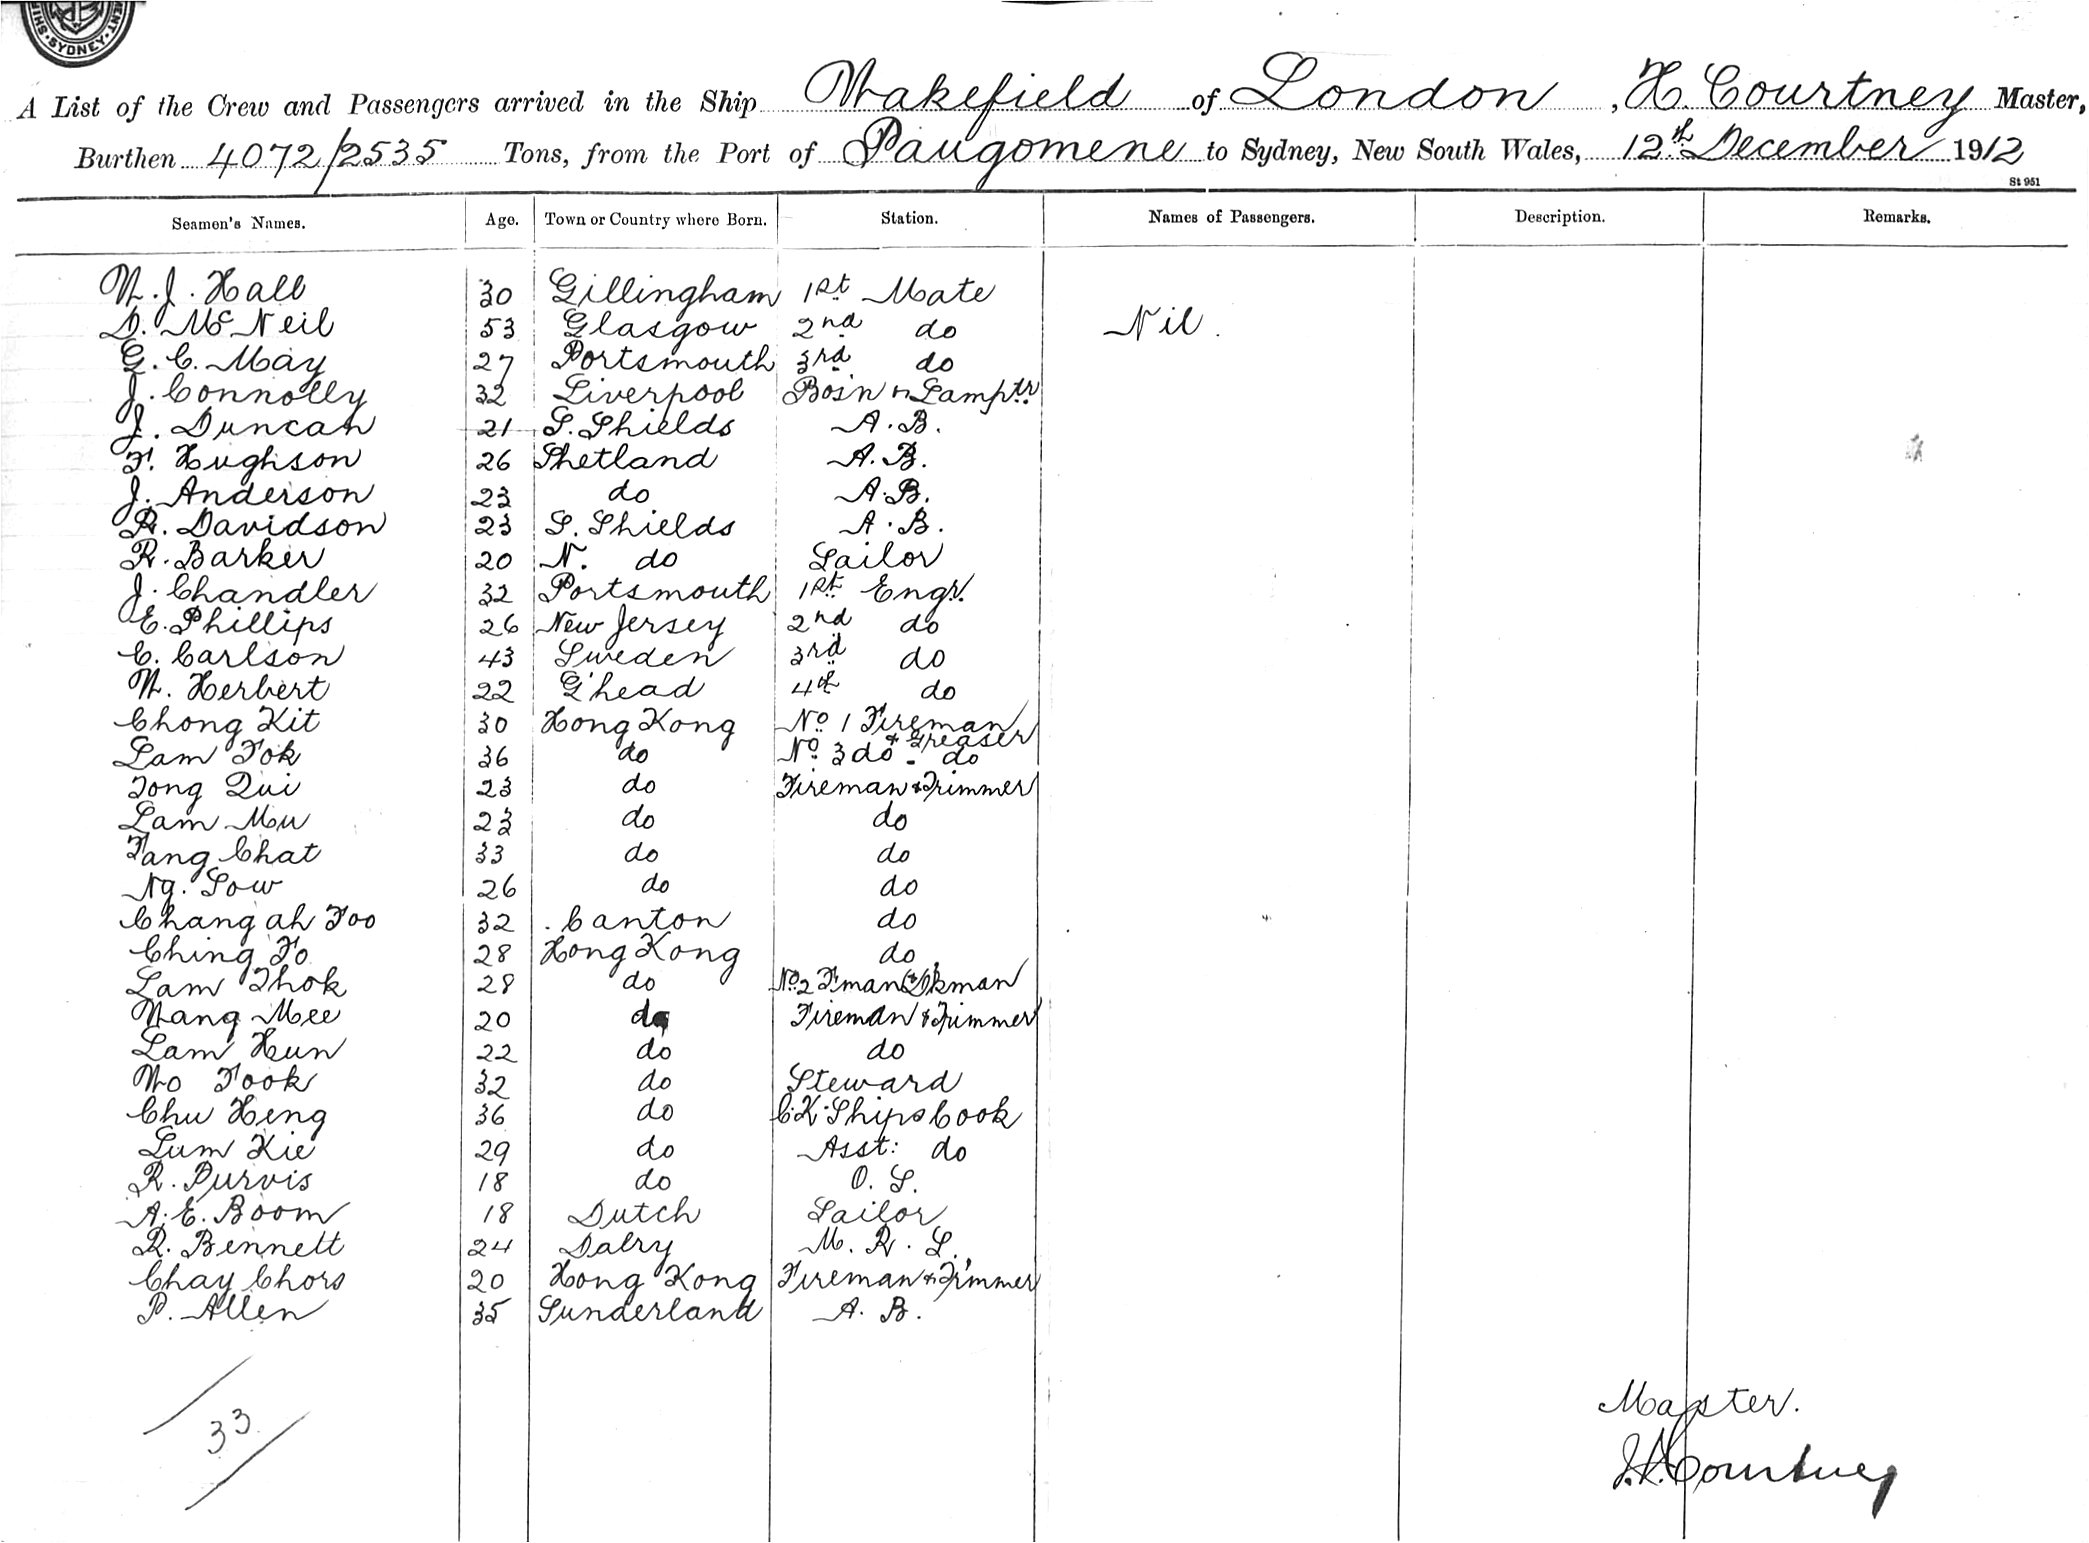 SYDNEY
A List of the Crew and Passengers arrived in the Ship Wakefield of London, H. Courtney Master,
Burthen 4072/2535 Tons, from the Port of Paugomene to Sydney, New South Wales, 12th December 1912
St 951
Seamen's Names. Age. Town or Country where Born. Station. Names of Passengers. Description. Remarks.
W. J. Hall 30 Gillingham 1st Mate
D. McNeil 53 Glasgow 2nd do Nil.
G. C. May 27 Portsmouth 3rd do
J. Connolly 32 Liverpool Bosn & Lamptr
J. Duncan 21 S. Shields A.B.
T. Hughson 26 Shetland A.B.
J. Anderson 23 do A.B.
R. Davidson 23 S. Shields A.B.
R. Barker 20 N. do Sailor
J. Chandler 32 Portsmouth 1st Engr.
E. Phillips 26 New Jersey 2nd do
C. Carlson 43 Sweden 3rd do
W. Herbert 22 G'head 4th do
Chong Kit 30 Hong Kong No 1 Fireman & Greaser
Lam Fok 36 do No 3 do - do
Tong Qui 23 do Fireman & Trimmer
Lam Mu 23 do do
Fang Chat 33 do do
Ng. Sow 26 do do
Chang ah Foo 32 Canton do
Ching Fo 28 Hong Kong do
Lam Thok 28 do No 2 Fman & Dkman
Wang Mee 20 do Fireman & Trimmer
Lam Hun 22 do do
Wo Fook 32 do Steward
Chu Heng 36 do C.K. Ships Cook
Lum Kie 29 do Asst: do
R. Purvis 18 do O. S.
A. E. Boom 18 Dutch Sailor
R. Bennett 24 Dalry M. R. S.
Chay Chors 20 Hong Kong Fireman & Trimmer
P. Allen 35 Sunderland A. B.
33
Master.
H. Courtney